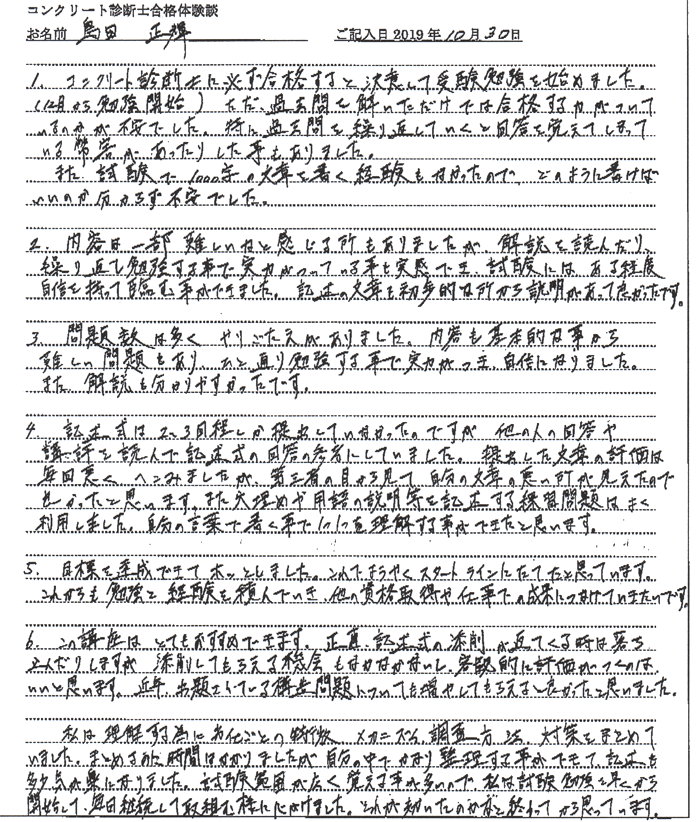 コンクリート診断士合格体験談
お名前 島田 正輝 ご記入日 2019年10月30日
1. コンクリート診断士に必ず合格すると決意して受験勉強を始めました。
(12月から勉強開始) ただ、過去問を解いただけでは合格する力がついて
いるのかが不安でした。特に過去問を繰り返していくと回答を覚えてしまって
いる弊害があったりした事もありました。
また、試験で1000字の文章を書く経験もなかったので、どのように書けば
いいのか分からず不安でした。
2. 内容は一部難しいなと感じる所もありましたが、解説を読んだり、
繰り返し勉強する事で実力がついている事を実感でき、試験には、ある程度
自信を持って臨む事ができました。記述の文章も初歩的な所から説明があって良かったです。
3. 問題数は多く やりごたえがありました。内容も基本的な事から
難しい問題もあり、ひと通り勉強する事で実力がつき、自信になりました。
また 解説も分かりやすかったです。
4. 記述式は2~3回程しか提出していなかったのですが 他の人の回答や
講評を読んで記述式の回答の参考にしていました。提出した文章の評価は
毎回悪く、ヘこみましたが、第三者の目から見て自分の文章の悪い所が見えたので
良かったと思います。また穴埋めや用語の説明等を記述する練習問題はよく
利用しました。自分の言葉で書く事で1つ1つを理解する事ができたと思います。
5. 目標を達成できてホッとしました。これでようやくスタートラインにたてたと思っています。
これからも勉強と経験を積んでいき、他の資格取得や仕事での成果につなげていきたいです。
6. この講座はとてもおすすめできます。正直、記述式の添削が返てくる時は落ち
込んだりしますが 添削してもらえる機会もなかなかないし、客観的に評価がつくのは、
いいと思います。近年、出題されている構造問題についても増やしてもらえると良かったと思いました。
私は理解する為にお化ごとの特徴 メカニズム、調査方法、対策をまとめて
いました。まとめるのに時間はかかりましたが自分の中でかなり整理する事ができて、記述も
多少点が楽になりました。試験範囲が広く覚える事が多いので、私は試験勉強を早くから
開始して、毎日継続して取組む様に心がけました。それが効いたのかなと終わってから思っています。